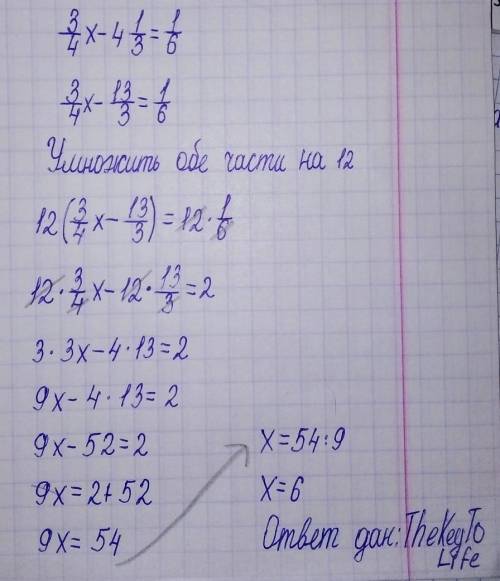 3/4 x - 4 1/3 = 1/6
3/4 x - 13/3 = 1/6
Умножить обе части на 12
12(3/4 x - 13/3) = 12 · 1/6
12 · 3/4 x - 12 · 13/3 = 2
3 · 3x - 4 · 13 = 2
9x - 4 · 13 = 2
9x - 52 = 2
9x = 2 + 52
9x = 54
x = 54 : 9
x = 6
Ответ дан: TheKeyTo
Life